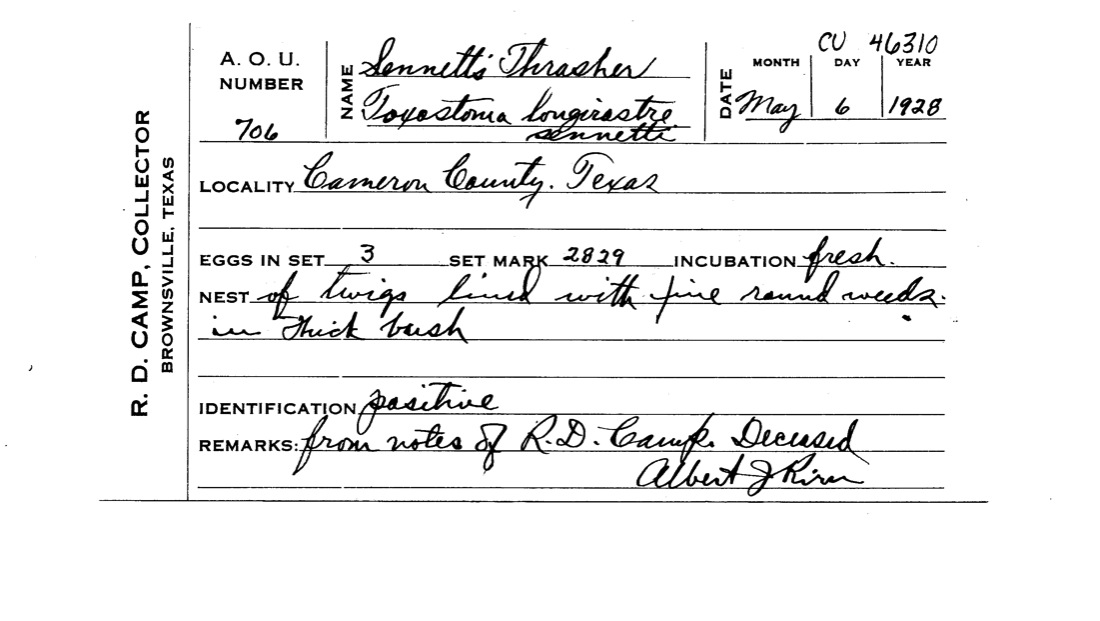 CU 46310
A. O. U. NUMBER 706
NAME Sennett's Thrasher
Toxostoma longirostre
sennetti
DATE MONTH May DAY 6 YEAR 1928
R. D. CAMP, COLLECTOR
BROWNSVILLE, TEXAS
LOCALITY Cameron County. Texas
EGGS IN SET 3 SET MARK 2829 INCUBATION fresh.
NEST of twigs lined with fine round weeds.
in thick bush
IDENTIFICATION positive
REMARKS: from notes of R.D. Camp. Deceased
Albert J Kirn